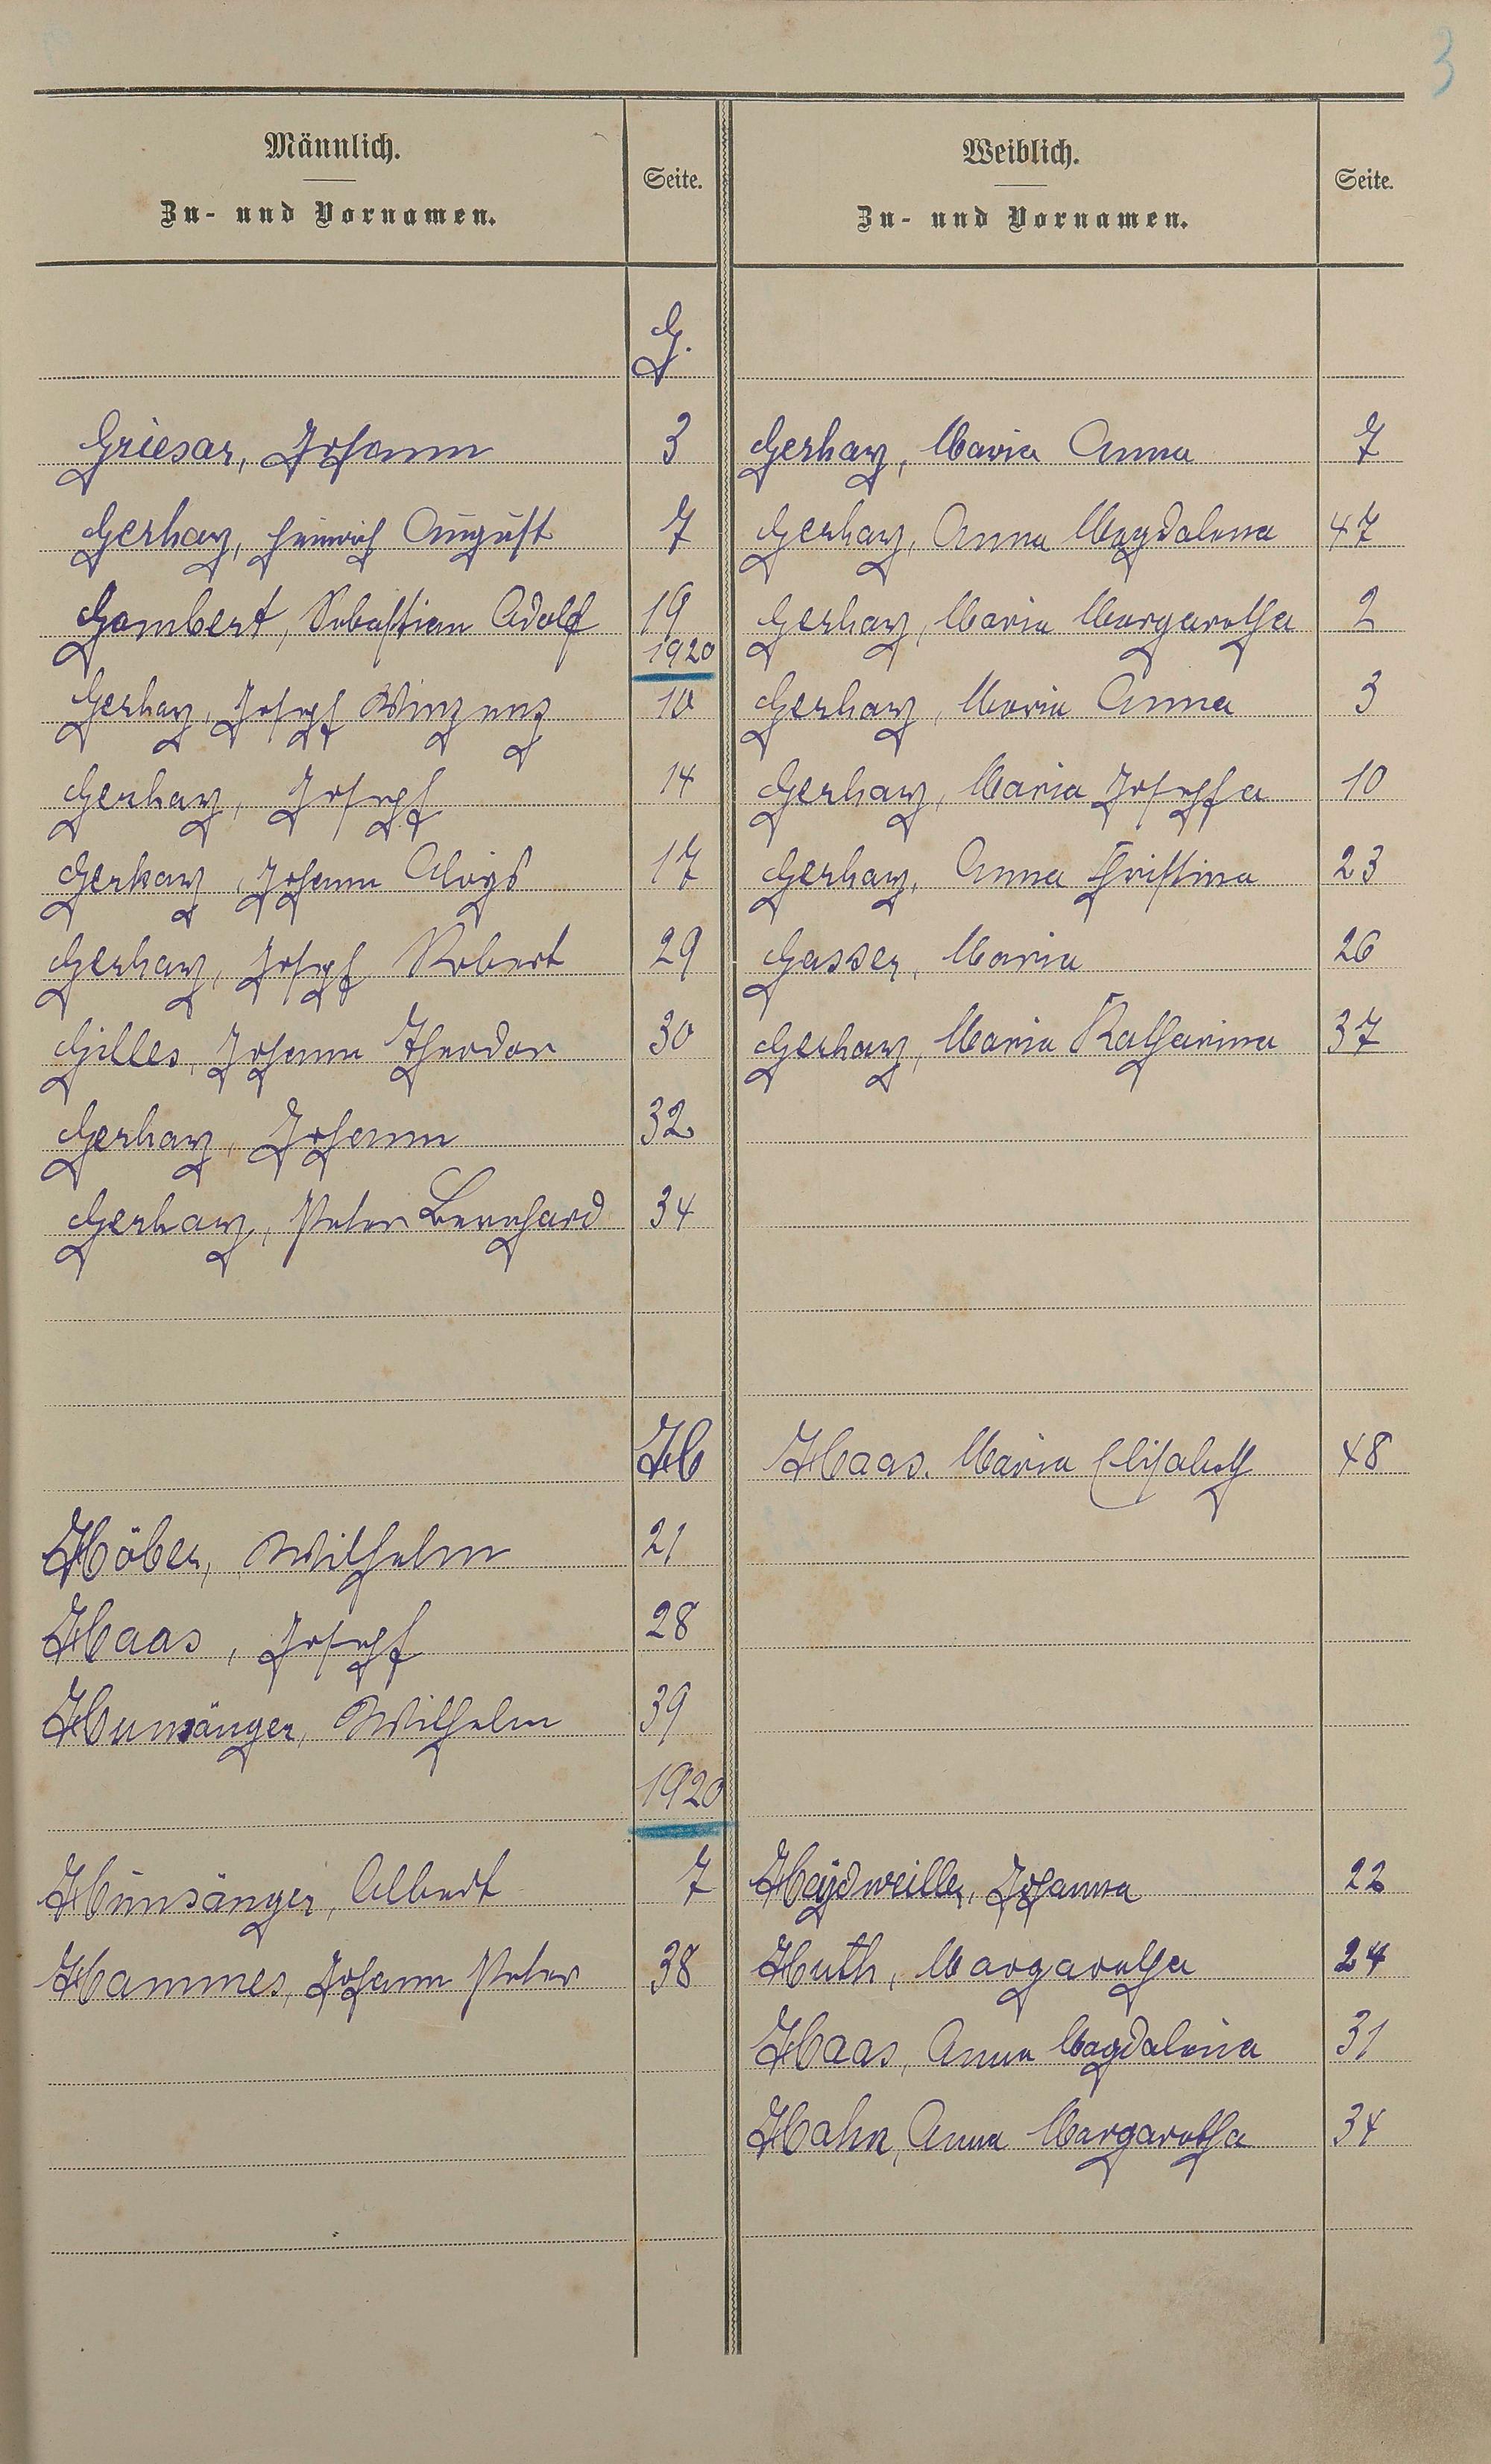 3
Männlich.
Zu- und Vornamen.
Seite.
Weiblich.
Zu- und Vornamen.
Seite.
G.
Griesar, Johann 3 Gerharz, Maria Anna 7
Gerharz, Heinrich August 7 Gerharz, Anna Magdalena 47
Gombert, Sebastian Adolf 19 Gerharz, Maria Margaretha 2
1920
Gerharz, Josef Winzenz 10 Gerharz, Maria Anna 3
Gerharz, Josef 14 Gerharz, Maria Josefa 10
Gerharz, Johann Aloys 17 Gerharz, Anna Christina 23
Gerharz, Josef Robert 29 Gasser, Maria 26
Gilles, Johann Theodor 30 Gerharz, Maria Katharina 37
Gerharz, Johann 32
Gerharz, Peter Bernhard 34
H Haas, Maria Elisabeth 48
Höber, Wilhelm 21
Haas, Josef 28
Hunsänger, Wilhelm 39
1920
Hünsänger, Albert 7 Heydweiller, Johanna 22
Hammes, Johann Peter 38 Huth, Margaretha 24
Haas, Anna Magdalena 31
Hahn, Anna Margaretha 34